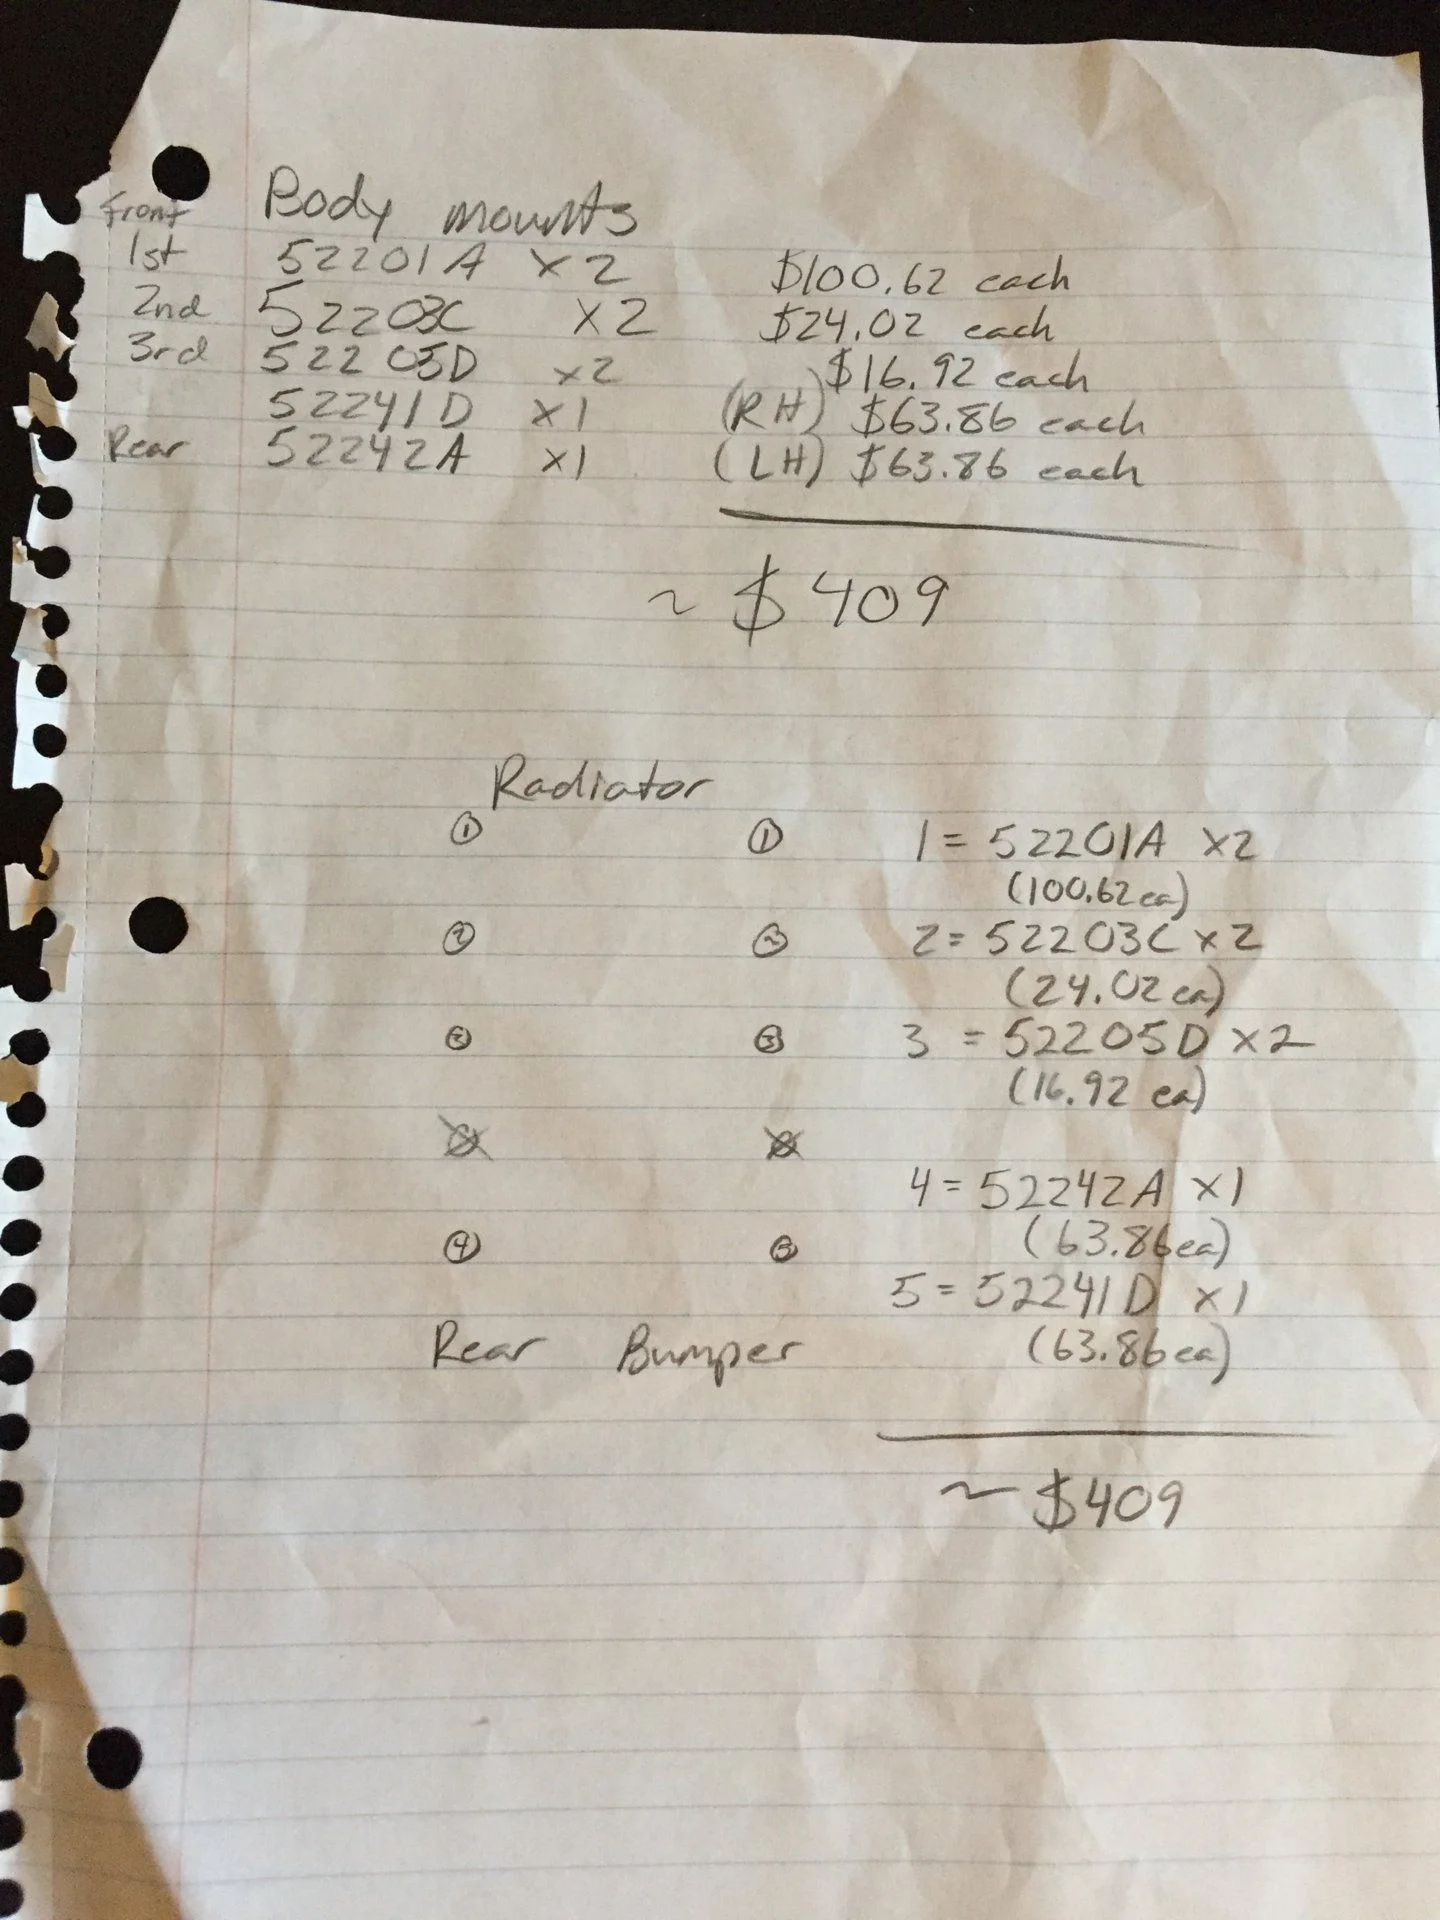 Front Body mounts
1st 52201A x2 $100.62 each
2nd 52203C x2 $24.02 each
3rd 52205D x2 $16.92 each
52241D x1 (RH) $63.86 each
Rear 52242A x1 (LH) $63.86 each
~ $409
Radiator
① ① 1 = 52201A x2
(100.62 ea)
② ② 2 = 52203C x2
(24.02 ea)
③ ③ 3 = 52205D x2
(16.92 ea)
4 = 52242A x1
④ ⑤ (63.86 ea)
5 = 52241D x1
Rear Bumper (63.86 ea)
~ $409